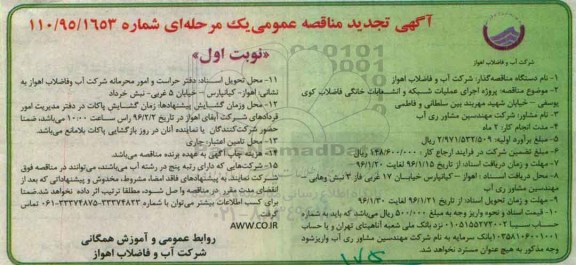 آگهی تجدید مناقصه عمومی یک مرحله‌ای شماره ۱۱۰/۹۵/۱۶۵۳
«نوبت اول»
شرکت آب و فاضلاب اهواز
۱- نام دستگاه مناقصه گذار: شرکت آب و فاضلاب اهواز
۲- موضوع مناقصه: پروژه اجرای عملیات شبکه و انشعابات خانگی فاضلاب کوی
یوسفی - خیابان شهید مهربند بین سلطانی و فاطمی
۳- نام مشاور: شرکت مهندسین مشاور ری آب
۴- مدت انجام کار: ۲ ماه
۵- مبلغ برآورد اولیه: ۲/۹۷۱/۵۳۲/۵۰۹ ریال
۶- مبلغ تضمین شرکت در فرآیند ارجاع کار: ۱۴۸/۶۰۰/۰۰۰ ریال
۷- مهلت و زمان دریافت اسناد: از تاریخ ۹۶/۱/۱۵ لغایت ۹۶/۱/۲۰
۸- محل دریافت اسناد: اهواز - کیانپارس خیابان ۱۷ غربی فاز ۳ نبش وهابی -
مهندسین مشاور ری آب
۹- مهلت و زمان تحویل اسناد: از تاریخ ۹۶/۱/۲۱ لغایت ۹۶/۱/۳۰
۱۰- قیمت اسناد و نحوه واریز وجه به مبلغ ۵۰۰/۰۰۰ ریال می‌باشد که باید به شماره
حساب سیبا ۰۱۰۵۱۵۵۲۷۳۰۰۲ نزد بانک ملی شعبه آناهیتای تهران و یا حساب
۱۰۳۵۸۱۰۶۰۰۱۰۰۱ بانک سرمایه به نام شرکت مهندسین مشاور ری آب واریز شود
وجه مذکور به هیچ عنوان مسترد نخواهد شد.
۱۱- محل تحویل اسناد: دفتر حراست و امور محرمانه شرکت آب وفاضلاب اهواز به
نشانی: اهواز- کیانپارس - خیابان ۵ غربی- نبش خرداد
۱۲- محل وزمان گشایش پیشنهادها: زمان گشایش پاکات در دفتر مدیریت امور
قراردادهای شرکت آبفای اهواز در تاریخ ۹۶/۲/۲ راس ساعت ۱۰:۰۰ می‌باشد. ضمنا
حضور شرکت‌کنندگان یا نماینده آنان در روز بازگشایی پاکات بلامانع می‌باشد.
۱۳- محل تامین اعتبار: جاری
۱۴- هزینه چاپ آگهی به عهده برنده مناقصه می‌باشد.
۱۵- شرکت‌هایی که دارای رتبه پنج در رشته آب می‌باشند، می‌توانند در مناقصه فوق
شرکت نمایند. به پیشنهادهای فاقد امضا، مشروط، مخدوش و پیشنهاداتی که بعد از
انقضای مدت مقرر در مناقصه و اصل شود، مطلقا ترتیب اثر داده نخواهد شد. ضمنا
برای کسب اطلاعات بیشتر می‌توانید با شماره ۳۳۳۷۴۸۲۳ -۳۳۳۷۴۸۷۵-۰۶۱ تماس
گرفت. AWW.CO.IR
روابط عمومی و آموزش همگانی
شرکت آب و فاضلاب اهواز